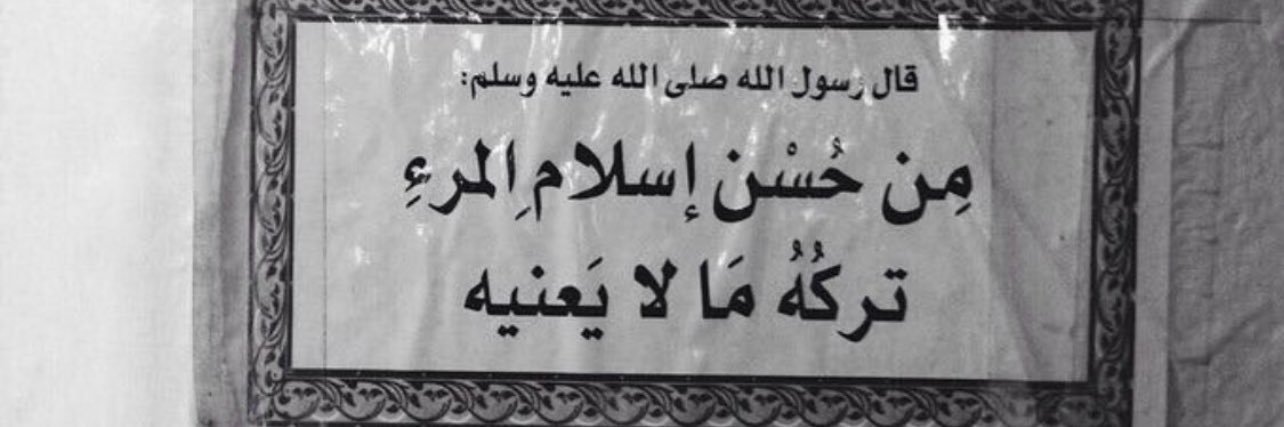 قال رسول الله صلى الله عليه وسلم:
مِن حُسْن إسلامِ المرءِ
تركُهُ مَا لا يَعنيه